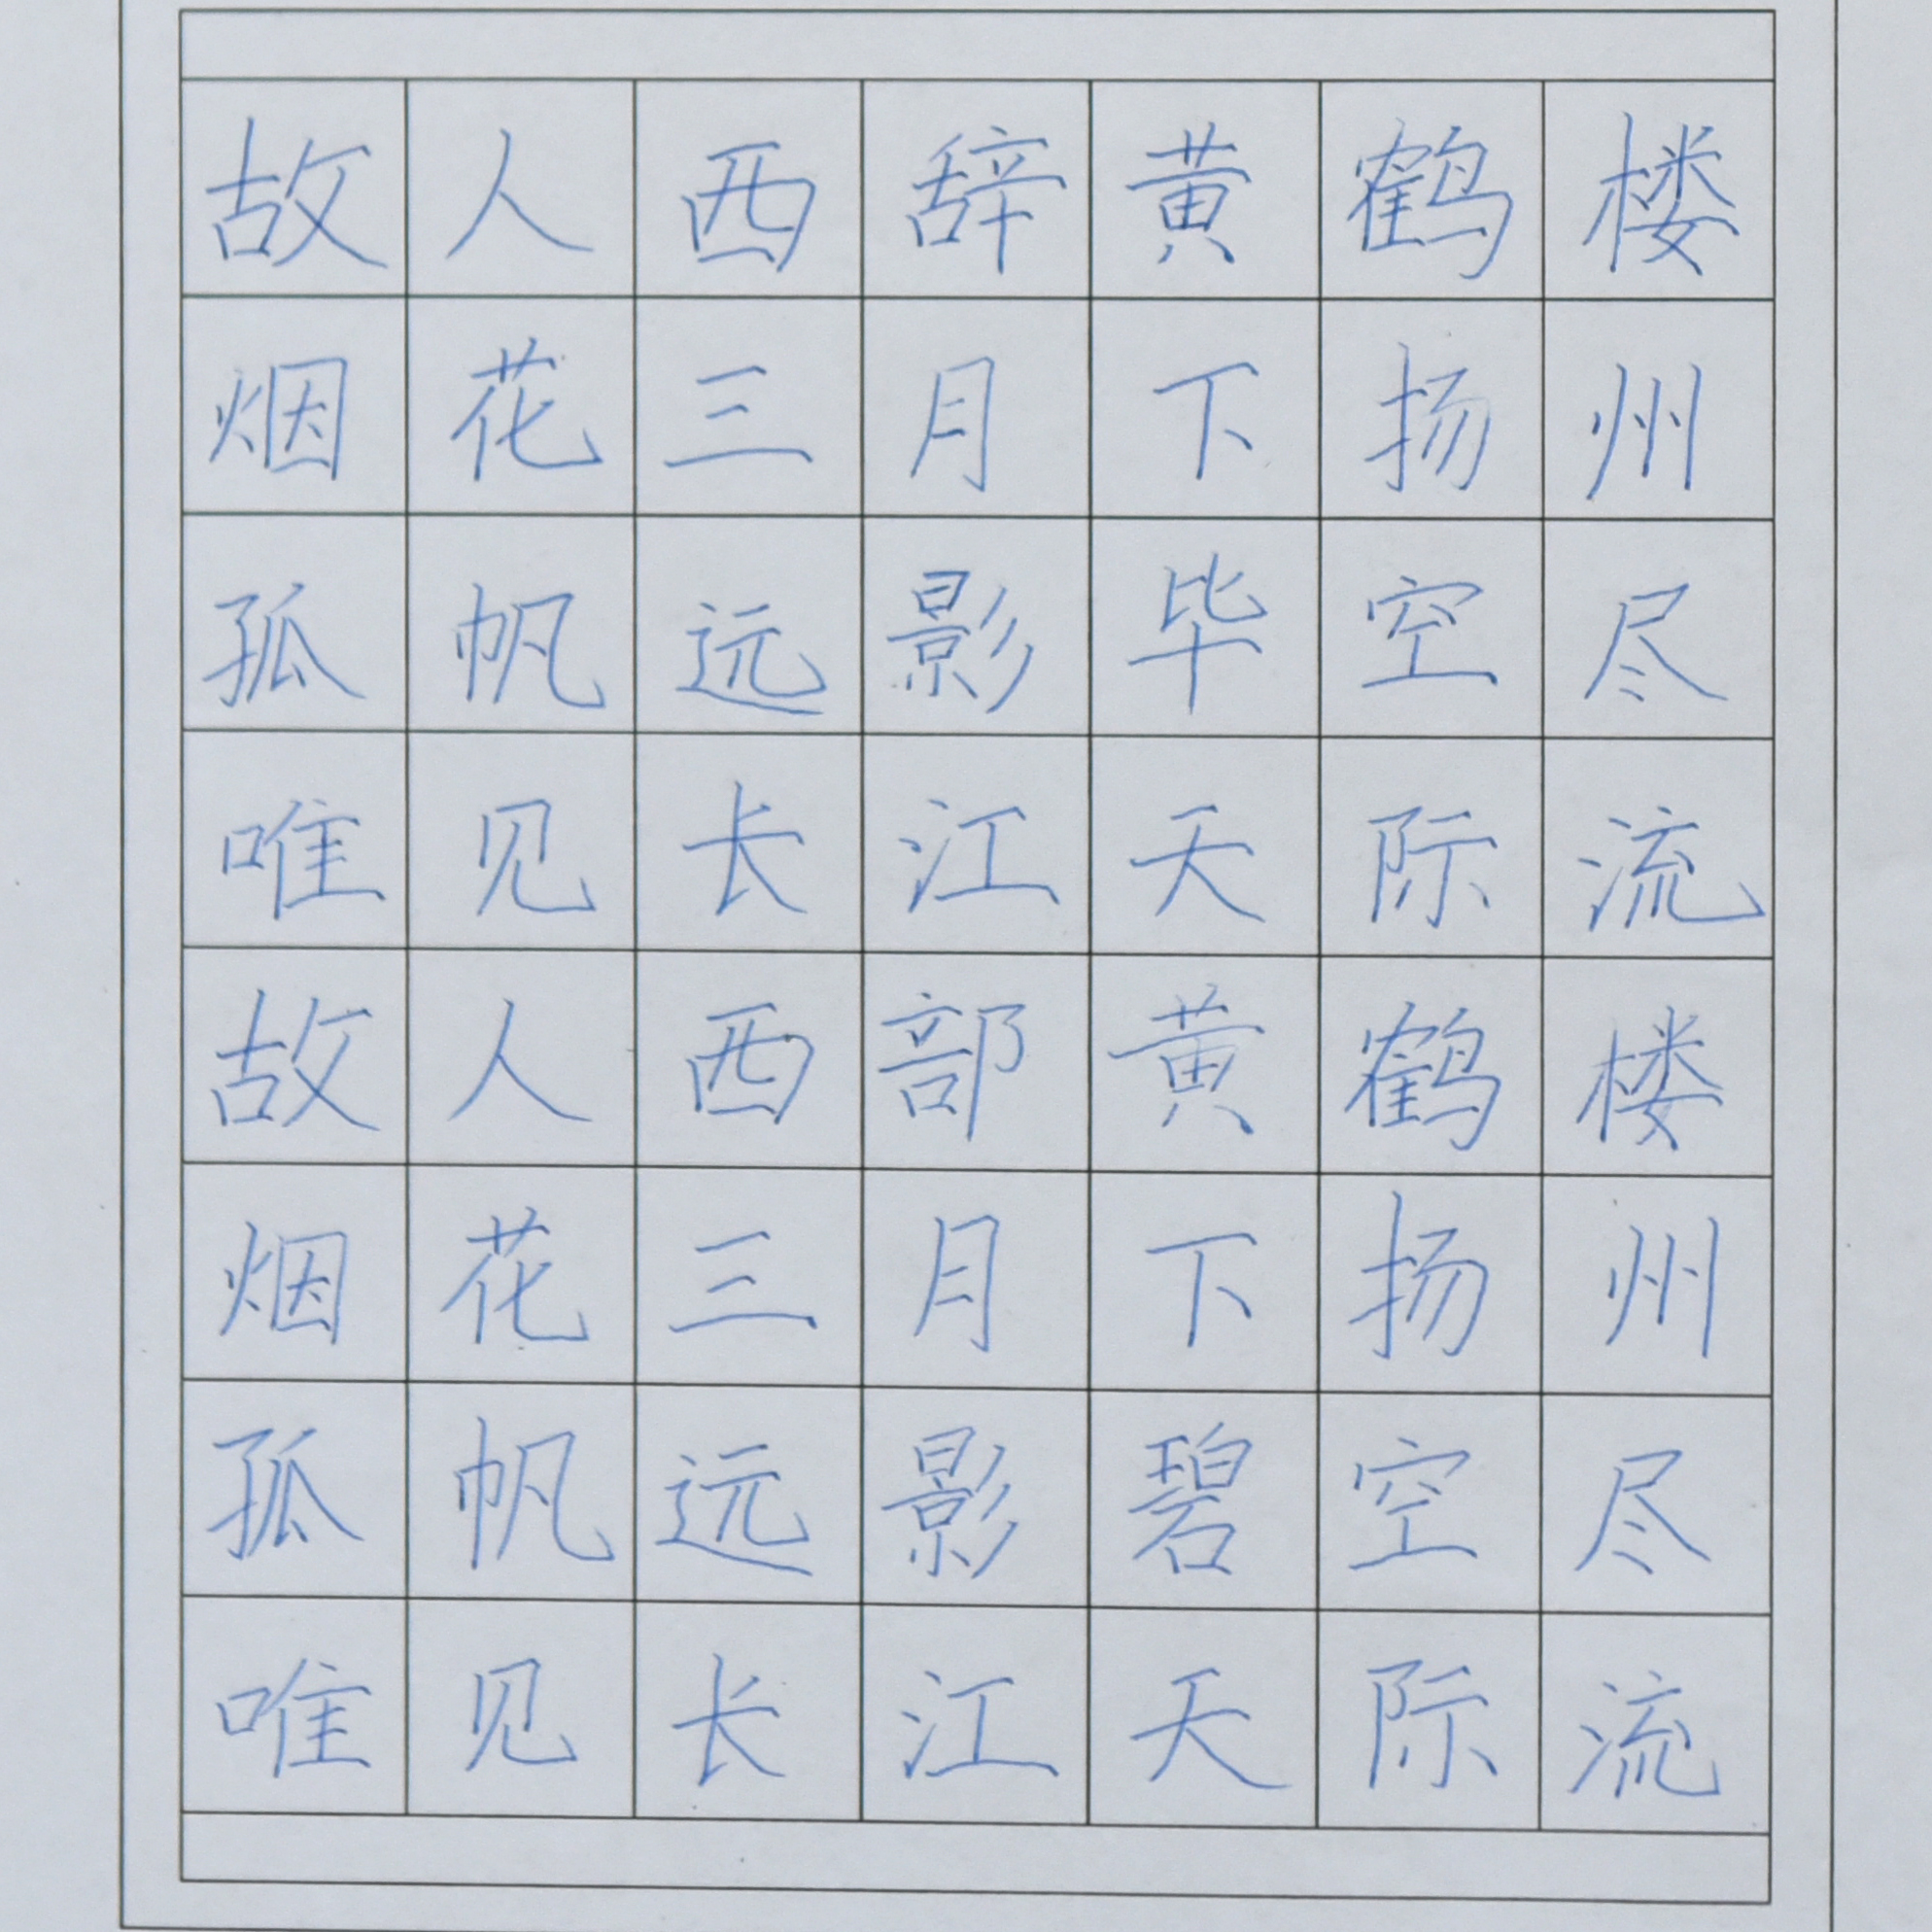 故人西辞黄鹤楼
烟花三月下扬州
孤帆远影毕空尽
唯见长江天际流
故人西部黄鹤楼
烟花三月下扬州
孤帆远影碧空尽
唯见长江天际流